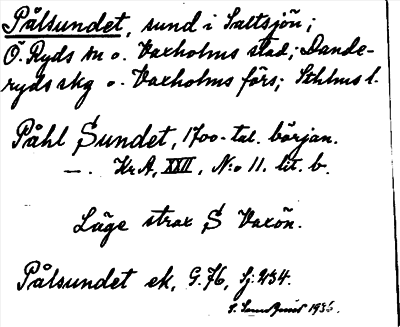 Pålsundet, sund i Saltsjön;
Ö. Ryds sn o. Vaxholms stad; Dande-
ryds skg o. Vaxholms förs; Sthlms l.
Påhl Sundet, 1700-tal. början.
—. Kr A, XXII, N:o 11. lit. b.
Läge strax S Vaxön.
Pålsundet ek, G. 76, Sj: 434.
1936.